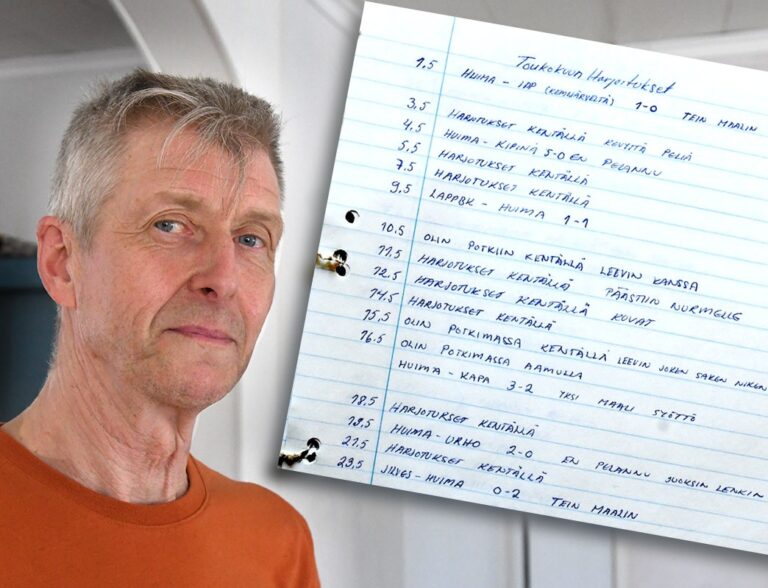 Toukokuun Harjoitukset
1.5 HUIMA - IAP (KEMIJÄRVELTÄ) 1-0 TEIN MAALIN
3.5 HARJOTUKSET KENTÄLLÄ KEVYITÄ PELIÄ
4.5 HUIMA - KIPINÄ 5-0 EN PELANNU
5.5 HARJOTUKSET KENTÄLLÄ
7.5 HARJOTUKSET KENTÄLLÄ
9.5 LAPPBK - HUIMA 1-1
10.5 OLIN POTKIIN KENTÄLLÄ LEEVIN KANSSA
11.5 HARJOTUKSET KENTÄLLÄ PÄÄSTIIN NURMELLE
12.5 HARJOTUKSET KENTÄLLÄ KOVAT
14.5 HARJOTUKSET KENTÄLLÄ
15.5 OLIN POTKIMASSA KENTÄLLÄ LEEVIN JOKEN SAKEN NIKEN
16.5 OLIN POTKIMASSA AAMULLA
HUIMA - KAPA 3-2 YKSI MAALI SYÖTTÖ
18.5 HARJOTUKSET KENTÄLLÄ
19.5 HUIMA - URHO 2-0 EN PELANNU JUOKSIN LENKIN
21.5 HARJOTUKSET KENTÄLLÄ
23.5 JILVES - HUIMA 0-2 TEIN MAALIN